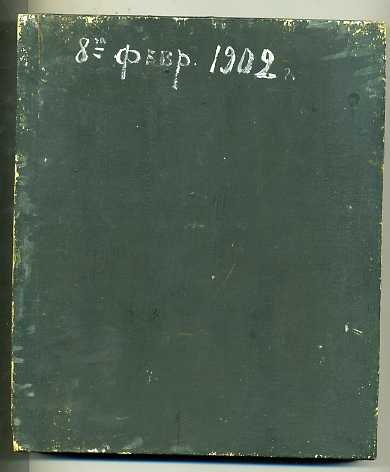 8го февр. 1902 г.